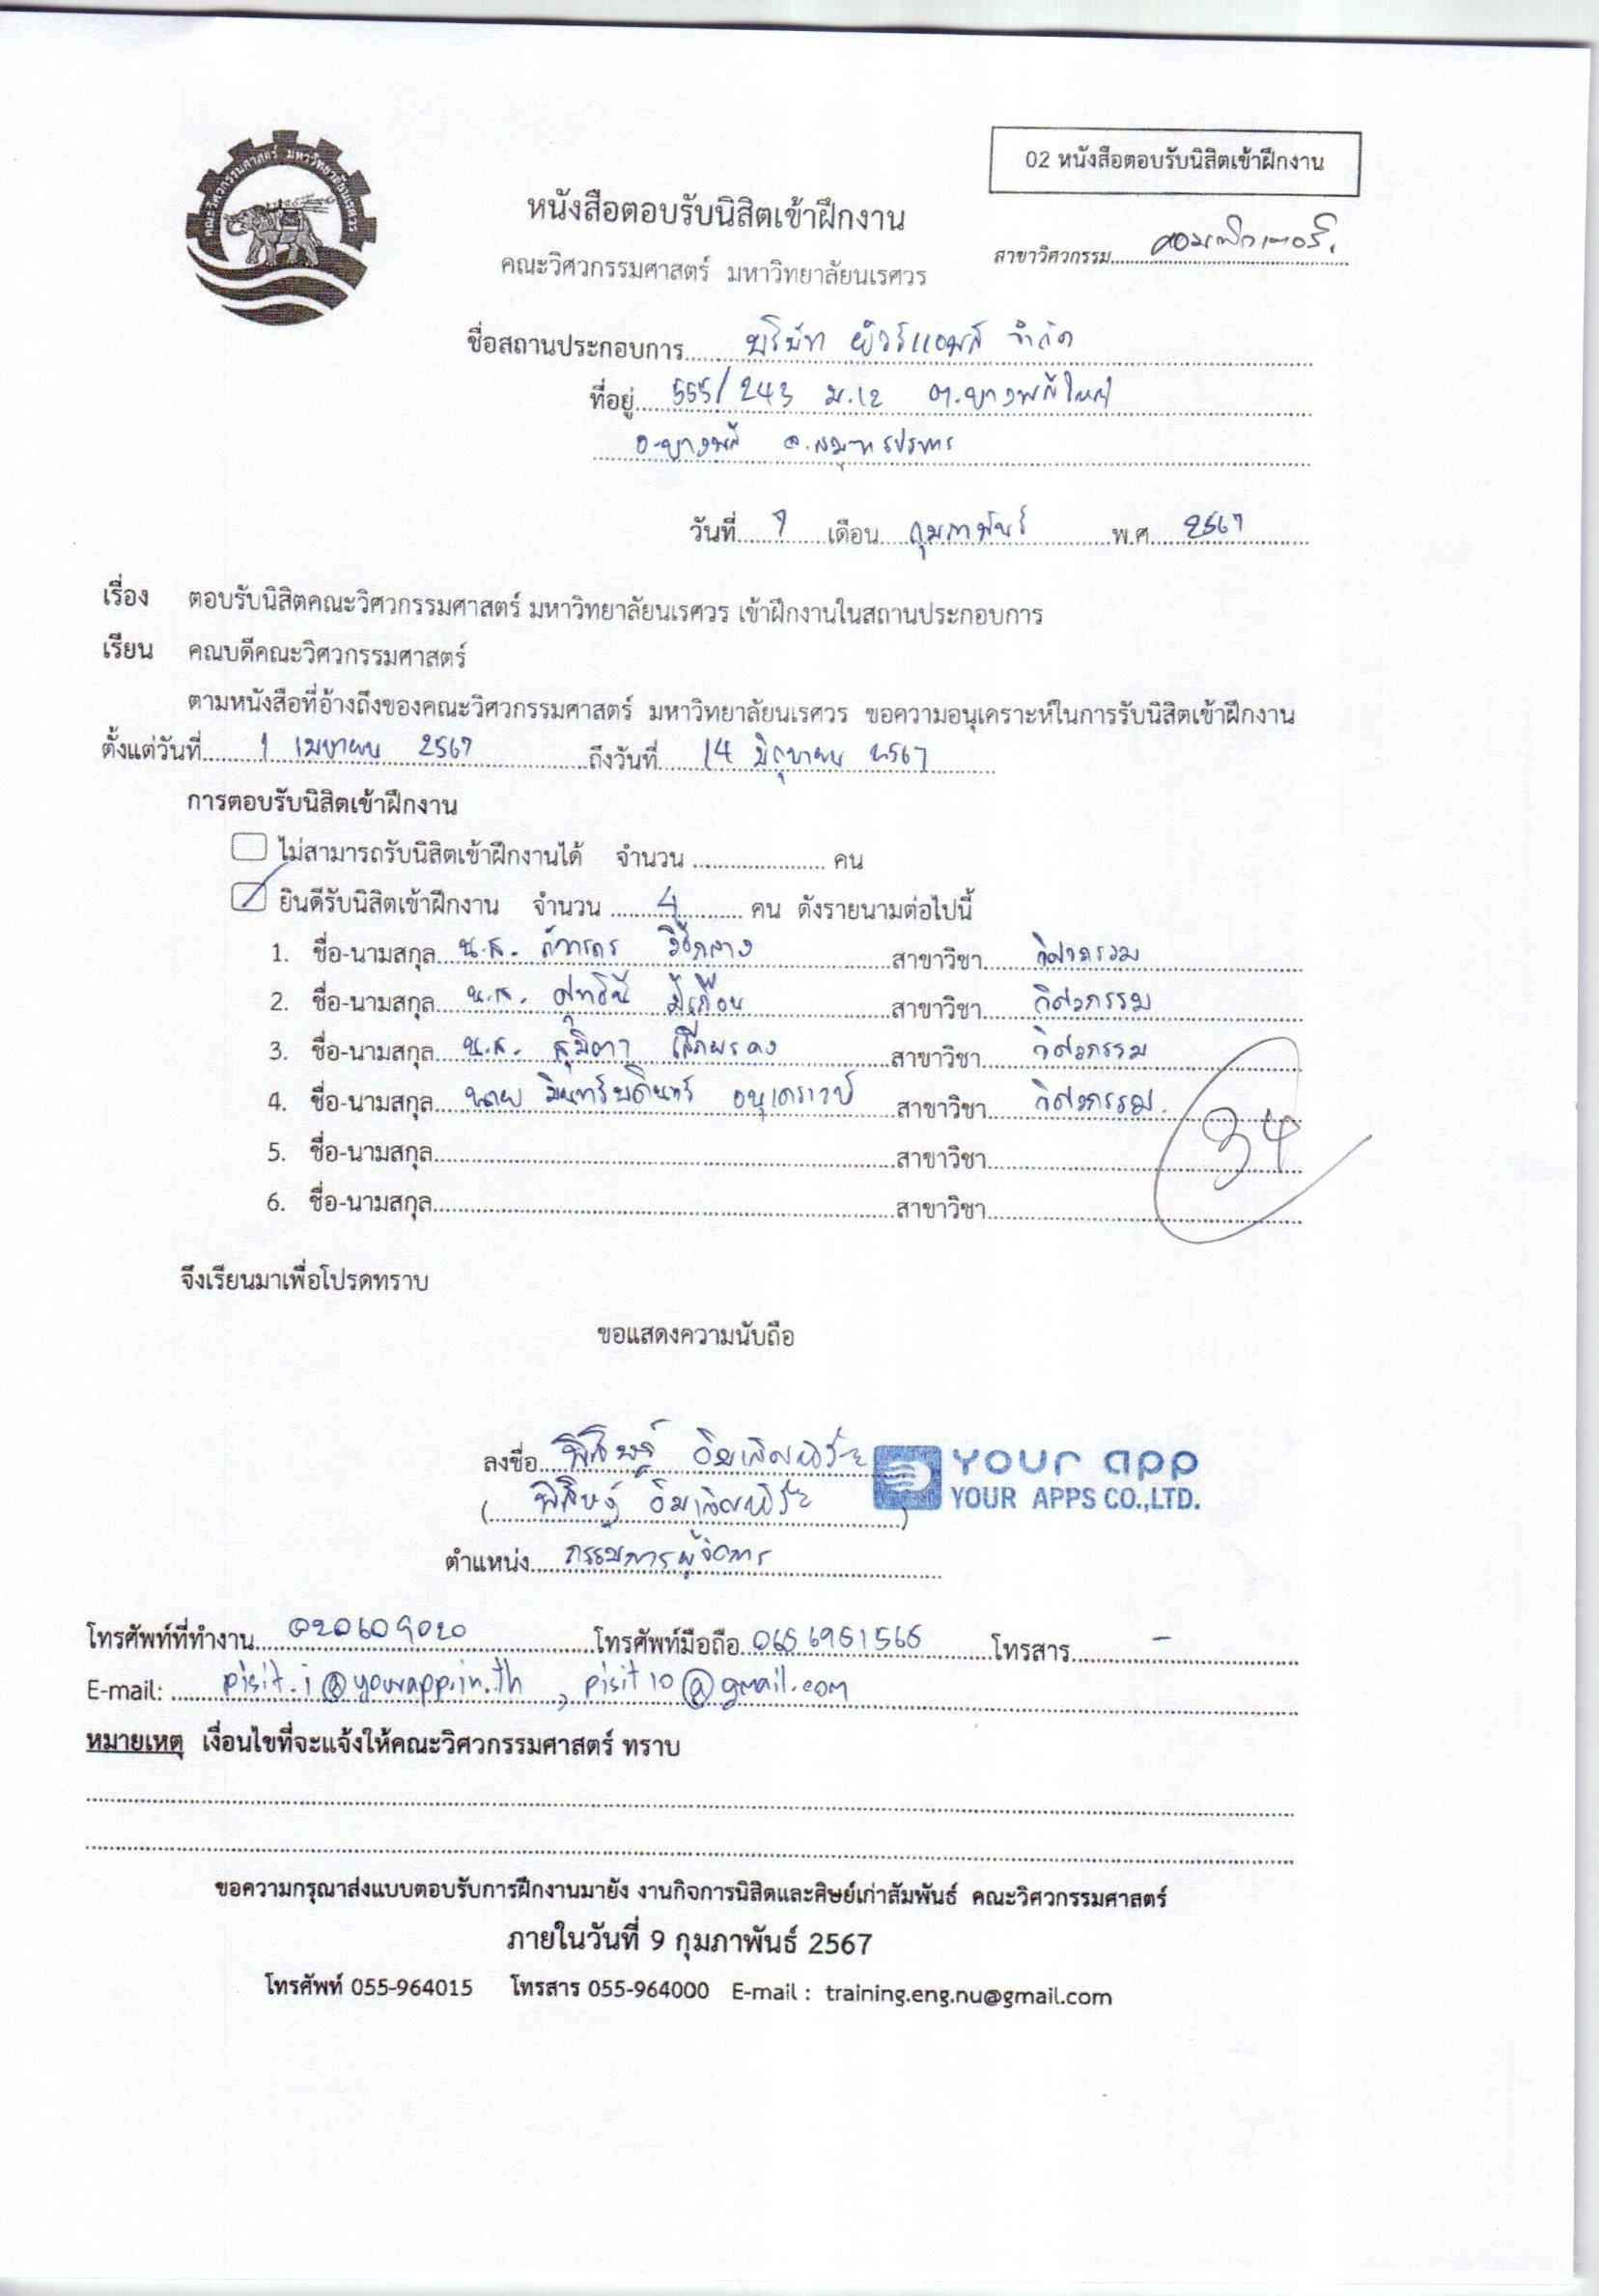 คณะวิศวกรรมศาสตร์ มหาวิทยาลัยนเรศวร
02 หนังสือตอบรับนิสิตเข้าฝึกงาน
หนังสือตอบรับนิสิตเข้าฝึกงาน
สาขาวิศวกรรม คอมพิวเตอร์
คณะวิศวกรรมศาสตร์ มหาวิทยาลัยนเรศวร
ชื่อสถานประกอบการ บริษัท ยัวร์แอพส์ จำกัด
ที่อยู่ 555/243 ม.12 ต.บางพลีใหญ่
อ.บางพลี จ.สมุทรปราการ
วันที่ 7 เดือน กุมภาพันธ์ พ.ศ. 2567
เรื่อง ตอบรับนิสิตคณะวิศวกรรมศาสตร์ มหาวิทยาลัยนเรศวร เข้าฝึกงานในสถานประกอบการ
เรียน คณบดีคณะวิศวกรรมศาสตร์
ตามหนังสือที่อ้างถึงของคณะวิศวกรรมศาสตร์ มหาวิทยาลัยนเรศวร ขอความอนุเคราะห์ในการรับนิสิตเข้าฝึกงาน
ตั้งแต่วันที่ 1 เมษายน 2567 ถึงวันที่ 14 มิถุนายน 2567
การตอบรับนิสิตเข้าฝึกงาน
ไม่สามารถรับนิสิตเข้าฝึกงานได้ จำนวน คน
ยินดีรับนิสิตเข้าฝึกงาน จำนวน 4 คน ดังรายนามต่อไปนี้
1. ชื่อ-นามสกุล น.ส. สาขาวิชา วิศวกรรม
2. ชื่อ-นามสกุล น.ส. สาขาวิชา วิศวกรรม
3. ชื่อ-นามสกุล น.ส. สุมิตา สาขาวิชา วิศวกรรม
4. ชื่อ-นามสกุล นาย สาขาวิชา วิศวกรรม
5. ชื่อ-นามสกุล สาขาวิชา
34
6. ชื่อ-นามสกุล สาขาวิชา
จึงเรียนมาเพื่อโปรดทราบ
ขอแสดงความนับถือ
ลงชื่อ พิสิษฐ์
your app
YOUR APPS CO.,LTD.
( พิสิษฐ์ )
ตำแหน่ง กรรมการผู้จัดการ
โทรศัพท์ที่ทำงาน 020609020 โทรศัพท์มือถือ 0656951565 โทรสาร -
E-mail: pisit.i@yourapp.in.th , pisit10@gmail.com
หมายเหตุ เงื่อนไขที่จะแจ้งให้คณะวิศวกรรมศาสตร์ ทราบ
ขอความกรุณาส่งแบบตอบรับการฝึกงานมายัง งานกิจการนิสิตและศิษย์เก่าสัมพันธ์ คณะวิศวกรรมศาสตร์
ภายในวันที่ 9 กุมภาพันธ์ 2567
โทรศัพท์ 055-964015 โทรสาร 055-964000 E-mail : training.eng.nu@gmail.com